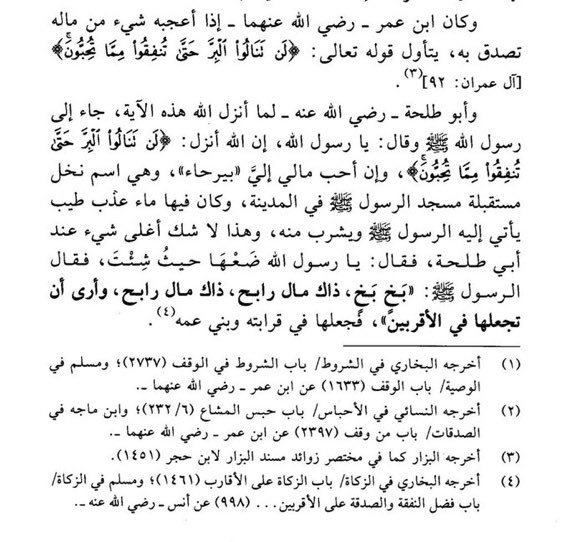 وكان ابن عمر ـ رضي الله عنهما ـ إذا أعجبه شيء من ماله
تصدق به، يتأول قوله تعالى: ﴿لَن تَنَالُوا۟ ٱلْبِرَّ حَتَّىٰ تُنفِقُوا۟ مِمَّا تُحِبُّونَۚ﴾
[آل عمران: ٩٢]<sup>(٣)</sup>.
وأبو طلحة ـ رضي الله عنه ـ لما أنزل الله هذه الآية، جاء إلى
رسول الله ﷺ وقال: يا رسول الله، إن الله أنزل: ﴿لَن تَنَالُوا۟ ٱلْبِرَّ حَتَّىٰ
تُنفِقُوا۟ مِمَّا تُحِبُّونَۚ﴾، وإن أحب مالي إليَّ «بيرحاء»، وهي اسم نخل
مستقبلة مسجد الرسول ﷺ في المدينة، وكان فيها ماء عذب طيب
يأتي إليه الرسول ﷺ ويشرب منه، وهذا لا شك أغلى شيء عند
أبي طلحة، فقال: يا رسول الله ضَعْهَا حيثُ شِئْتَ، فقال
الرسول ﷺ: «بَخٍ بَخٍ، ذاك مال رابح، ذاك مال رابح، وأرى أن
تجعلها في الأقربين»، فجعلها في قرابته وبني عمه<sup>(٤)</sup>.
(١) أخرجه البخاري في الشروط/ باب الشروط في الوقف (٢٧٣٧)؛ ومسلم في
الوصية/ باب الوقف (١٦٣٣) عن ابن عمر ـ رضي الله عنهما ـ.
(٢) أخرجه النسائي في الأحباس/ باب حبس المشاع (٦/ ٢٣٢)؛ وابن ماجه في
الصدقات/ باب من وقف (٢٣٩٧) عن ابن عمر ـ رضي الله عنهما ـ.
(٣) أخرجه البزار كما في مختصر زوائد مسند البزار لابن حجر (١٤٥١).
(٤) أخرجه البخاري في الزكاة/ باب الزكاة على الأقارب (١٤٦١)؛ ومسلم في الزكاة/
باب فضل النفقة والصدقة على الأقربين... (٩٩٨) عن أنس ـ رضي الله عنه ـ.